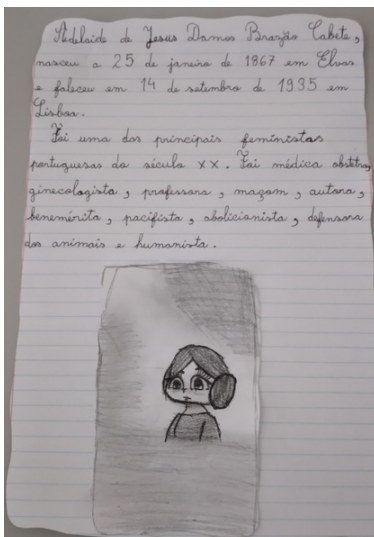 Adelaide de Jesus Damas Brazão Cabete,
nasceu a 25 de janeiro de 1867 em Elvas
e faleceu em 14 de setembro de 1935 em
Lisboa.
Foi uma das principais feministas
portuguesas do século XX. Foi médica obstetra,
ginecologista, professora, maçom, autora,
benemérita, pacifista, abolicionista, defensora
dos animais e humanista.